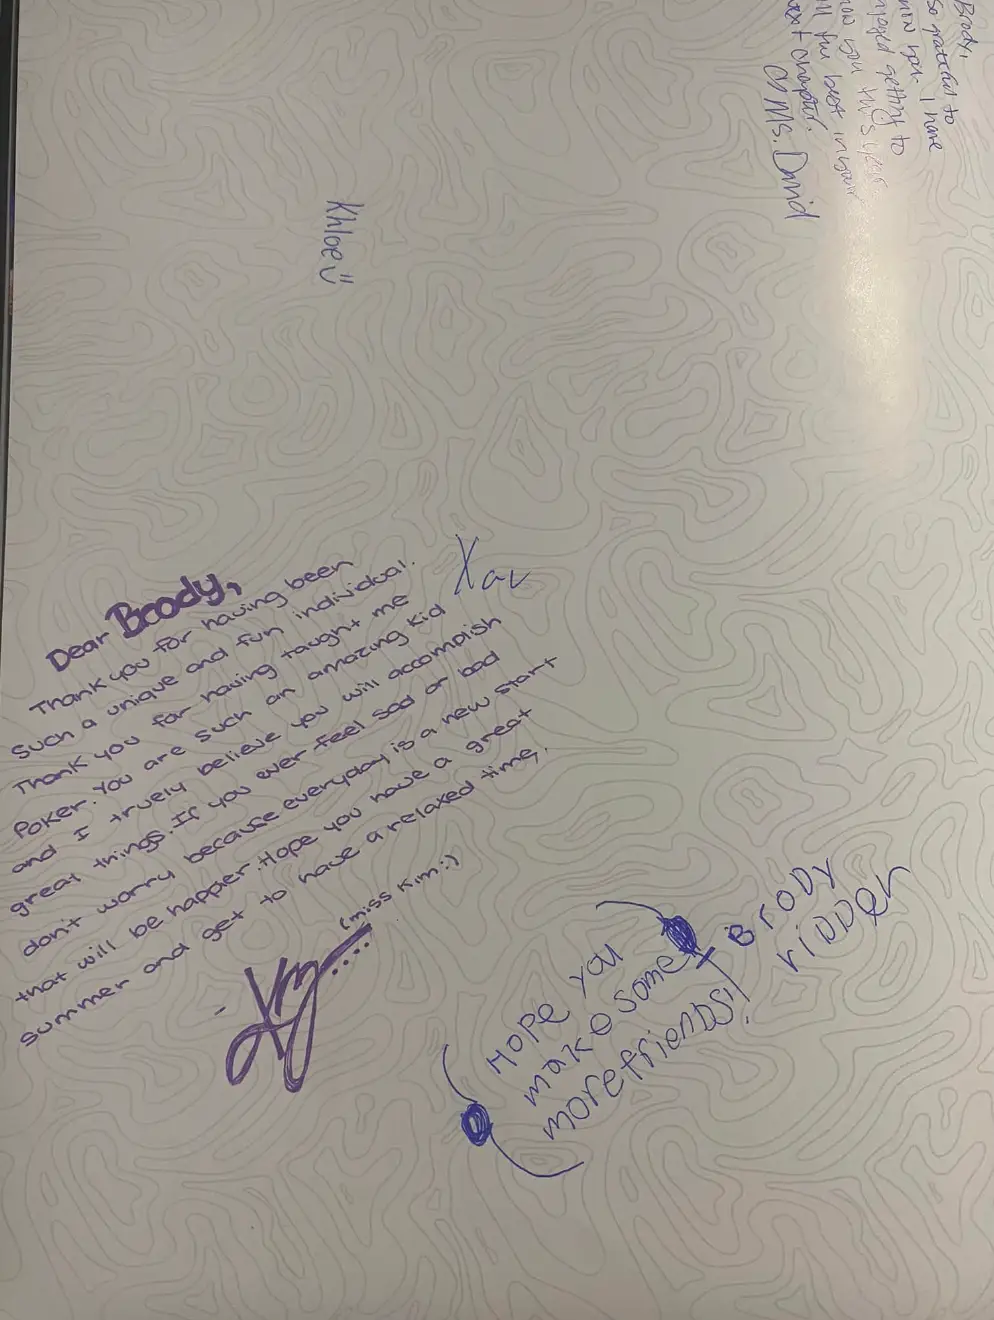 Brody,
So grateful to
know you. I have
enjoyed getting to
know you this year.
All the best in your
next chapter.
Ms. David
Khloe
Xav
Dear Brody,
Thank you for having been
such a unique and fun individual.
Thank you for having taught me
Poker. You are such an amazing kid
and I truely believe you will accomplish
great things. If you ever feel sad or bad
don't worry because everyday is a new start
that will be happier. Hope you have a great
summer and get to have a relaxed time.
(miss Kim :)
- Kim...
Hope you
make some
more friends!
- Brody
ridder